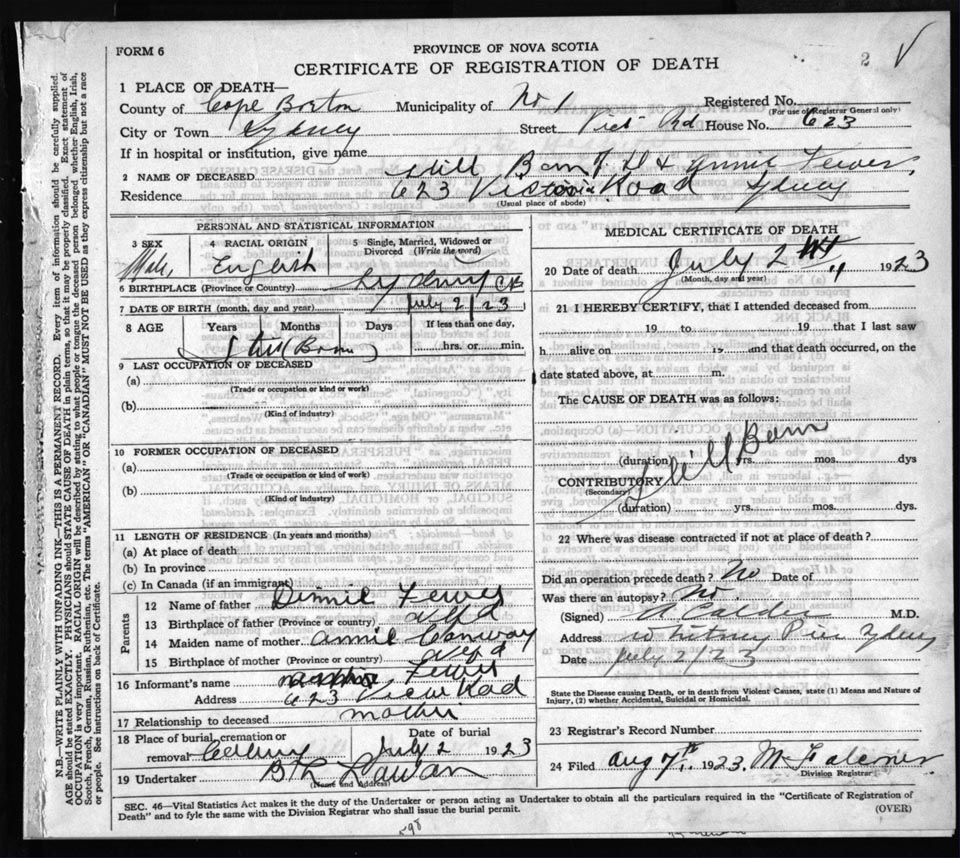 FORM 6
PROVINCE OF NOVA SCOTIA
CERTIFICATE OF REGISTRATION OF DEATH
2
1 PLACE OF DEATH—
County of Cape Breton Municipality of No 1 Registered No.
(For use of Registrar General only)
City or Town Sydney Street Vict Rd House No. 623
If in hospital or institution, give name
2 NAME OF DECEASED Still Born of D & Annie Fewer
Residence 623 Victoria Road Sydney
(Usual place of abode)
PERSONAL AND STATISTICAL INFORMATION
3 SEX 4 RACIAL ORIGIN 5 Single, Married, Widowed or Divorced (Write the word)
Male English
6 BIRTHPLACE (Province or Country) Sydney CB
7 DATE OF BIRTH (month, day and year) July 2/23
8 AGE Years Months Days If less than one day,
Still Born hrs. or min.
9 LAST OCCUPATION OF DECEASED
(a)
(Trade or occupation or kind or work)
(b)
(Kind of industry)
10 FORMER OCCUPATION OF DECEASED
(a)
(Trade or occupation or kind of work)
(b)
(Kind of industry)
11 LENGTH OF RESIDENCE (In years and months)
(a) At place of death
(b) In province
(c) In Canada (if an immigrant)
Parents
12 Name of father Dennie Fewer
13 Birthplace of father (Province or country) Nfld
14 Maiden name of mother Annie Conway
15 Birthplace of mother (Province or country) Nfld
16 Informant's name Fewer
Address 623 Rod
17 Relationship to deceased mother
18 Place of burial, cremation or removal Date of burial
July 2 1923
19 Undertaker
(Name and Address)
MEDICAL CERTIFICATE OF DEATH
20 Date of death July 2 " 1923
(Month, day and year)
21 I HEREBY CERTIFY, that I attended deceased from
19 to 19 that I last saw
h alive on 19 and that death occurred, on the
date stated above, at m.
The CAUSE OF DEATH was as follows:
Still Born
(duration) yrs. mos. dys
CONTRIBUTORY
(Secondary)
(duration) yrs. mos. dys.
22 Where was disease contracted if not at place of death?
Did an operation precede death? No Date of
Was there an autopsy? No.
(Signed) A Calder M.D.
Address Whitney Pier Sydney
Date July 2/23
State the Disease causing Death, or in death from Violent Causes, state (1) Means and Nature of
Injury, (2) whether Accidental, Suicidal or Homicidal.
23 Registrar's Record Number
24 Filed Aug 7th 1923. M
Division Registrar
SEC. 46—Vital Statistics Act makes it the duty of the Undertaker or person acting as Undertaker to obtain all the particulars required in the "Certificate of Registration of
Death" and to fyle the same with the Division Registrar who shall issue the burial permit.
(OVER)
598
N.B.—WRITE PLAINLY WITH UNFADING INK—THIS IS A PERMANENT RECORD. Every item of information should be carefully supplied.
AGE should be stated EXACTLY. PHYSICIANS should STATE CAUSE OF DEATH in plain terms, so that it may be properly classified. Exact statement of
OCCUPATION is very important. RACIAL ORIGIN will be described by stating to what people or tongue the deceased person belonged whether English, Irish,
Scotch, French, German, Russian, Ruthenian, etc. The terms "AMERICAN" or "CANADIAN" MUST NOT BE USED as they express citizenship but not a race
or people. See instructions on back of Certificate.